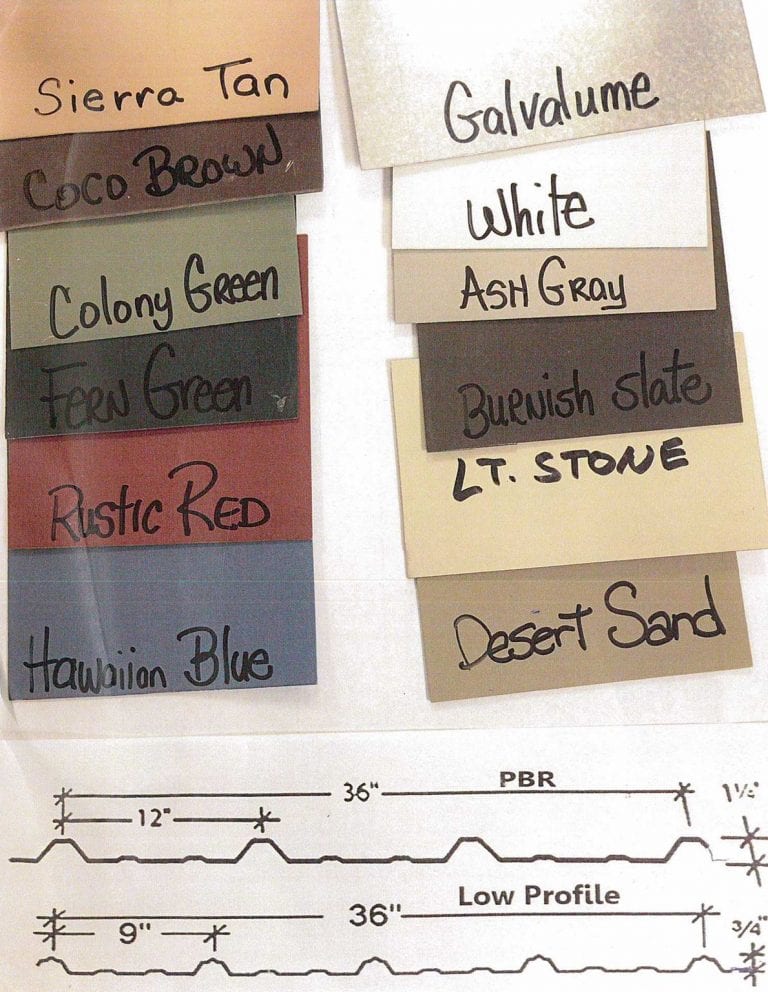 Sierra Tan
Coco BROWN
Colony Green
FERN Green
Rustic RED
Hawaiian Blue
Galvalume
White
ASH Gray
BURNish slate
LT. STONE
Desert Sand
36" PBR
12"
1¼"
36" Low Profile
9"
3/4"